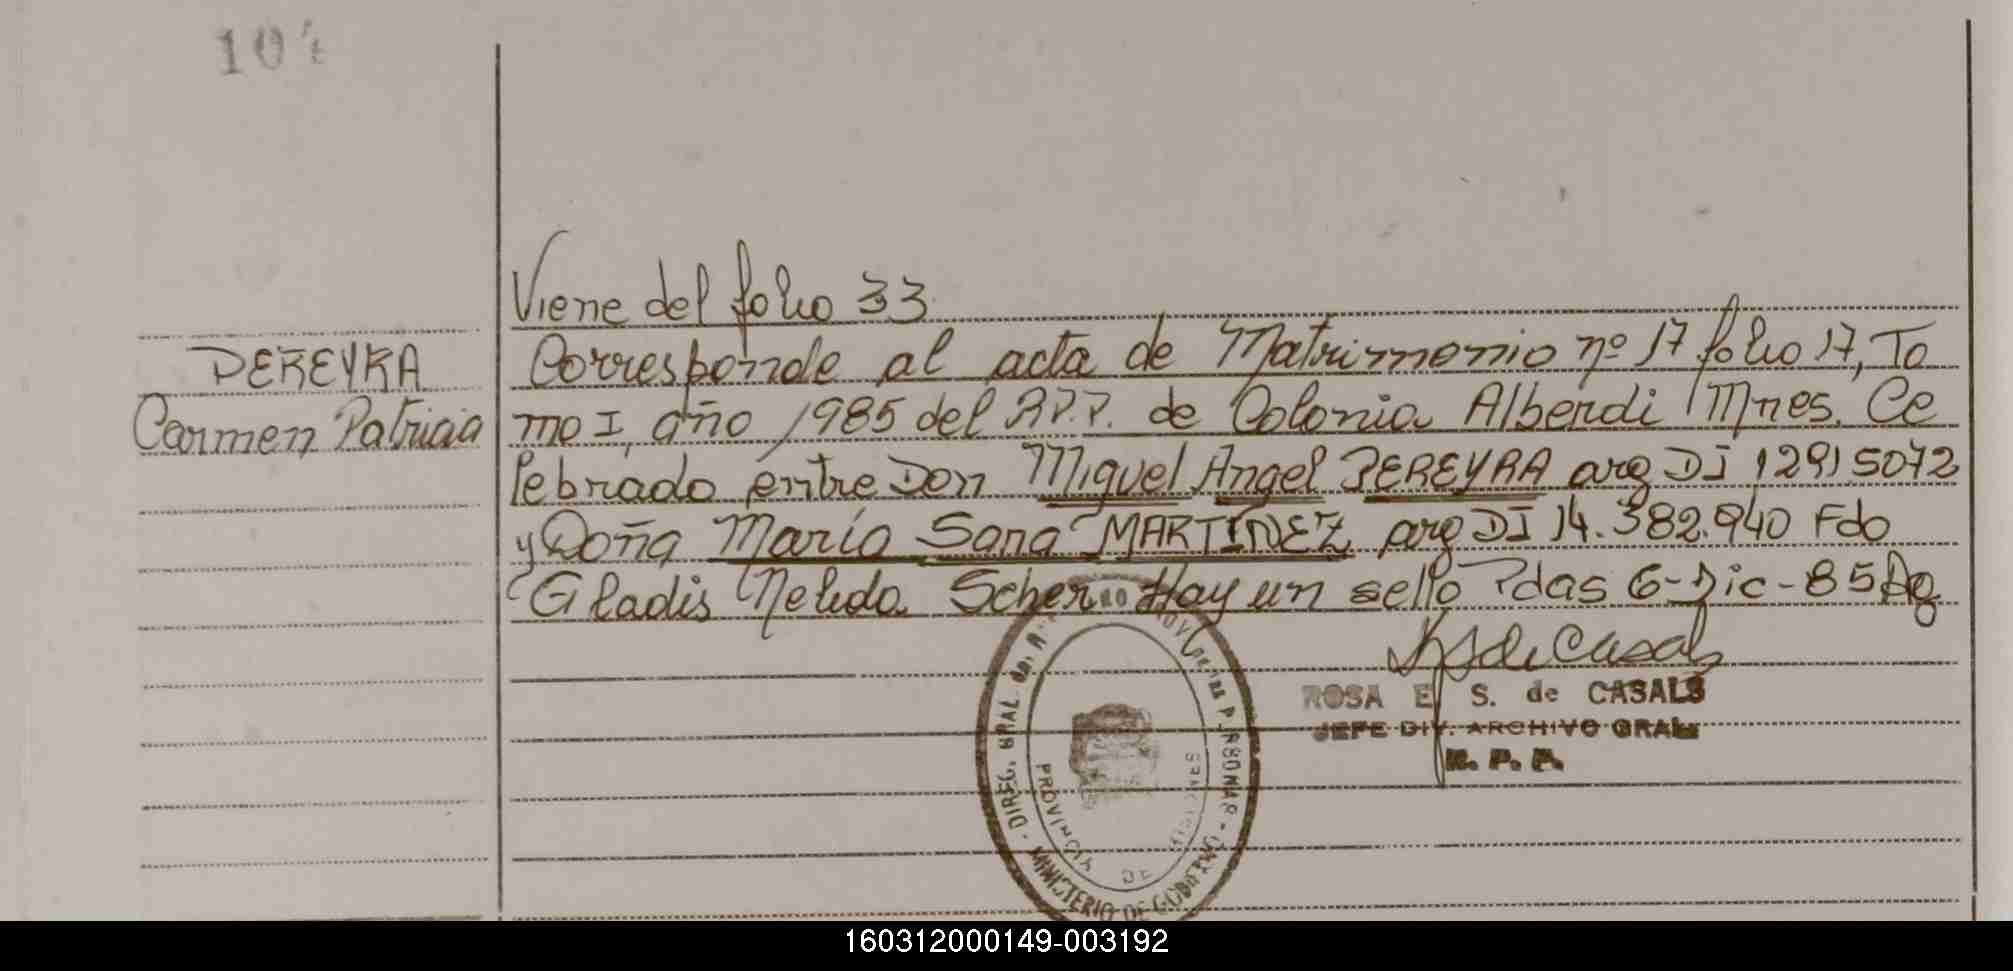 104
Viene del folio 33
PEREYRA
Carmen Patricia
Corresponde al acta de Matrimonio nº 17 folio 17, To
mo I, año 1985 del R.P.P. de Colonia Alberdi Mnes. Ce
lebrado entre Don Miguel Angel PEREYRA arg DI 12915072
y Doña María Sona MARTINEZ arg DI 14.382.940 Fdo
Gladis Nelida Scher Hay un sello Pdas 6-Dic-85
ROSA E S. de CASALS
JEFE DIV. ARCHIVO GRAL
R. P. P.
DIREC. GRAL. PERSONAS - MINISTERIO DE GOBIERNO
PROVINCIA DE MISIONES
160312000149-003192